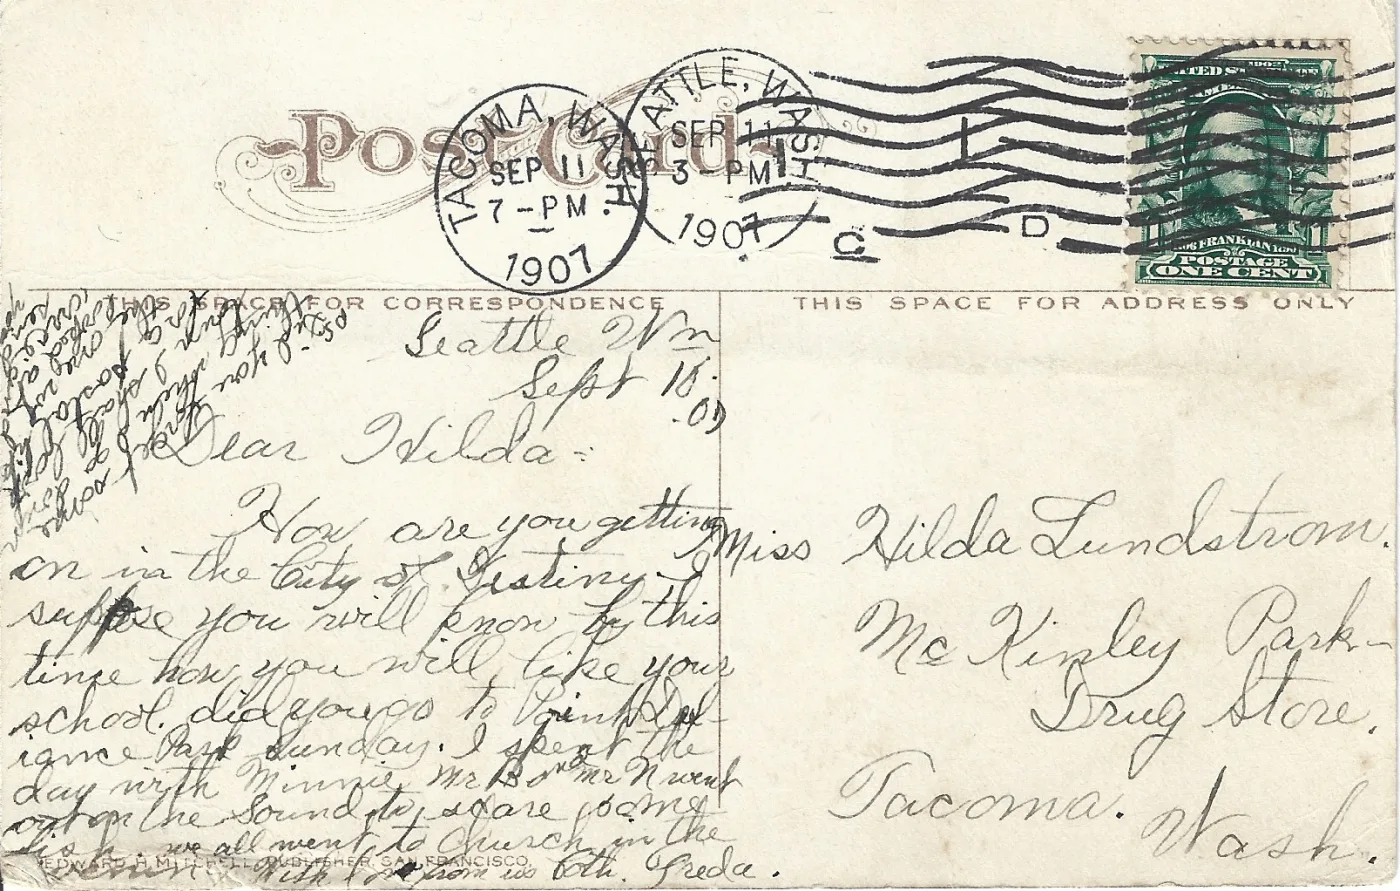 Post Card
TACOMA, WASH.
SEP 11
7-PM
1907
SEATTLE, WASH.
SEP 11
3-PM
1907
C
D
UNITED STATES OF AMERICA
1706 FRANKLIN 1790
POSTAGE
1 ONE CENT 1
THIS SPACE FOR CORRESPONDENCE
THIS SPACE FOR ADDRESS ONLY
Seattle Wn
Sept 10.
-07
Dear Hilda =
How are you getting
on in the City of Destiny. I
suppose you will know by this
time how you will like your
school. did you go to Point Def-
iance Park Sunday. I spent the
day with Minnie, Mr B and Mr N went
out on the Sound to scare some
fish. we all went to Church in the
With love from us both. Greda.
EDWARD H. MITCHELL, PUBLISHER, SAN FRANCISCO.
P.S. Did you
thing when
I shall
the postal
Miss Hilda Lundstrom.
McKinley Park-
Drug Store.
Tacoma.
Wash.